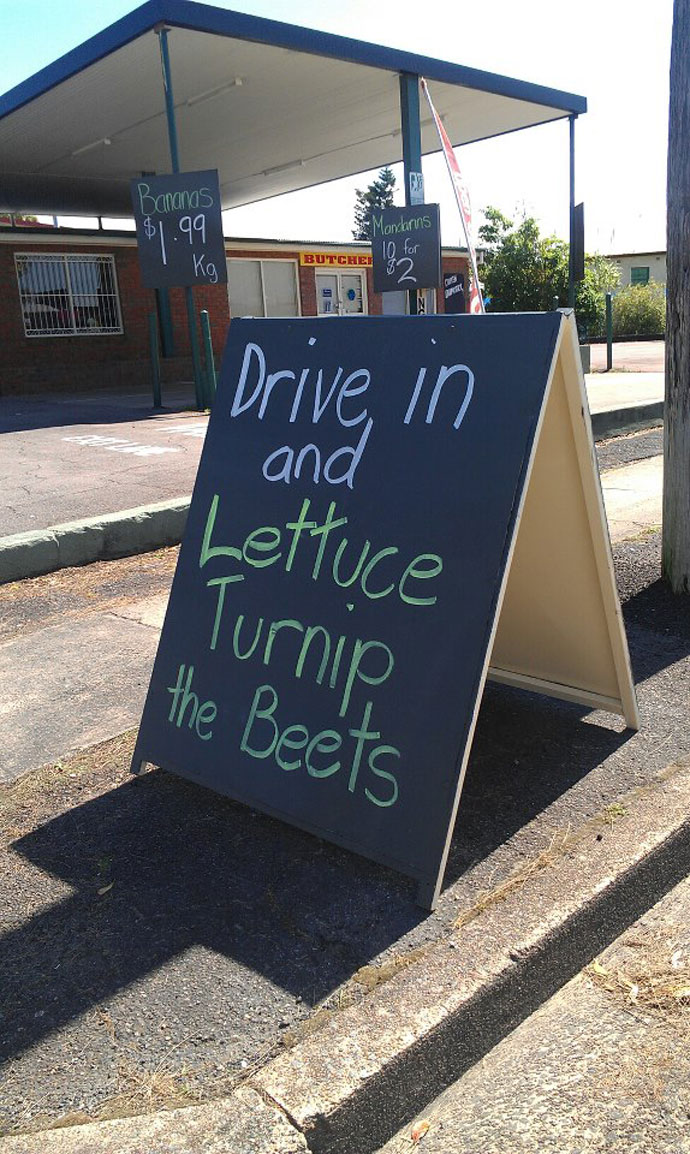 Bananas
$1.99
Kg
BUTCHE
Mandarins
10 for
$2
Drive in
and
Lettuce
Turnip
the Beets